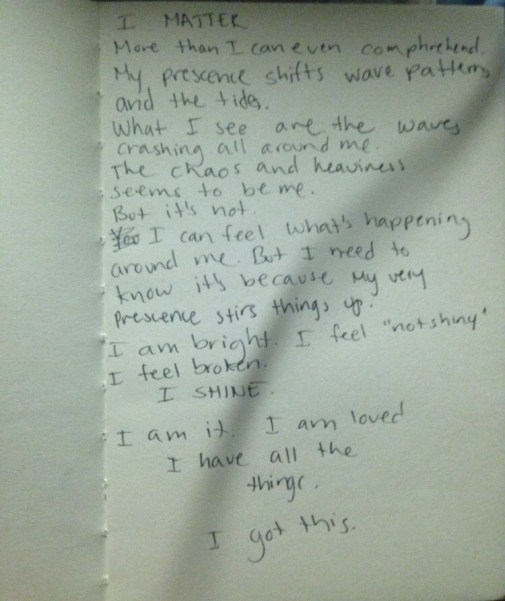 I MATTER
More than I can even comphrehend.
My prescence shifts wave patterns
and the tides.
What I see are the waves
crashing all around me.
The chaos and heaviness
seems to be me.
But it's not.
I can feel what's happening
around me. But I need to
know it's because my very
prescence stirs things up.
I am bright. I feel "not shiny"
I feel broken.
I SHINE.
I am it. I am loved
I have all the
things.
I got this.